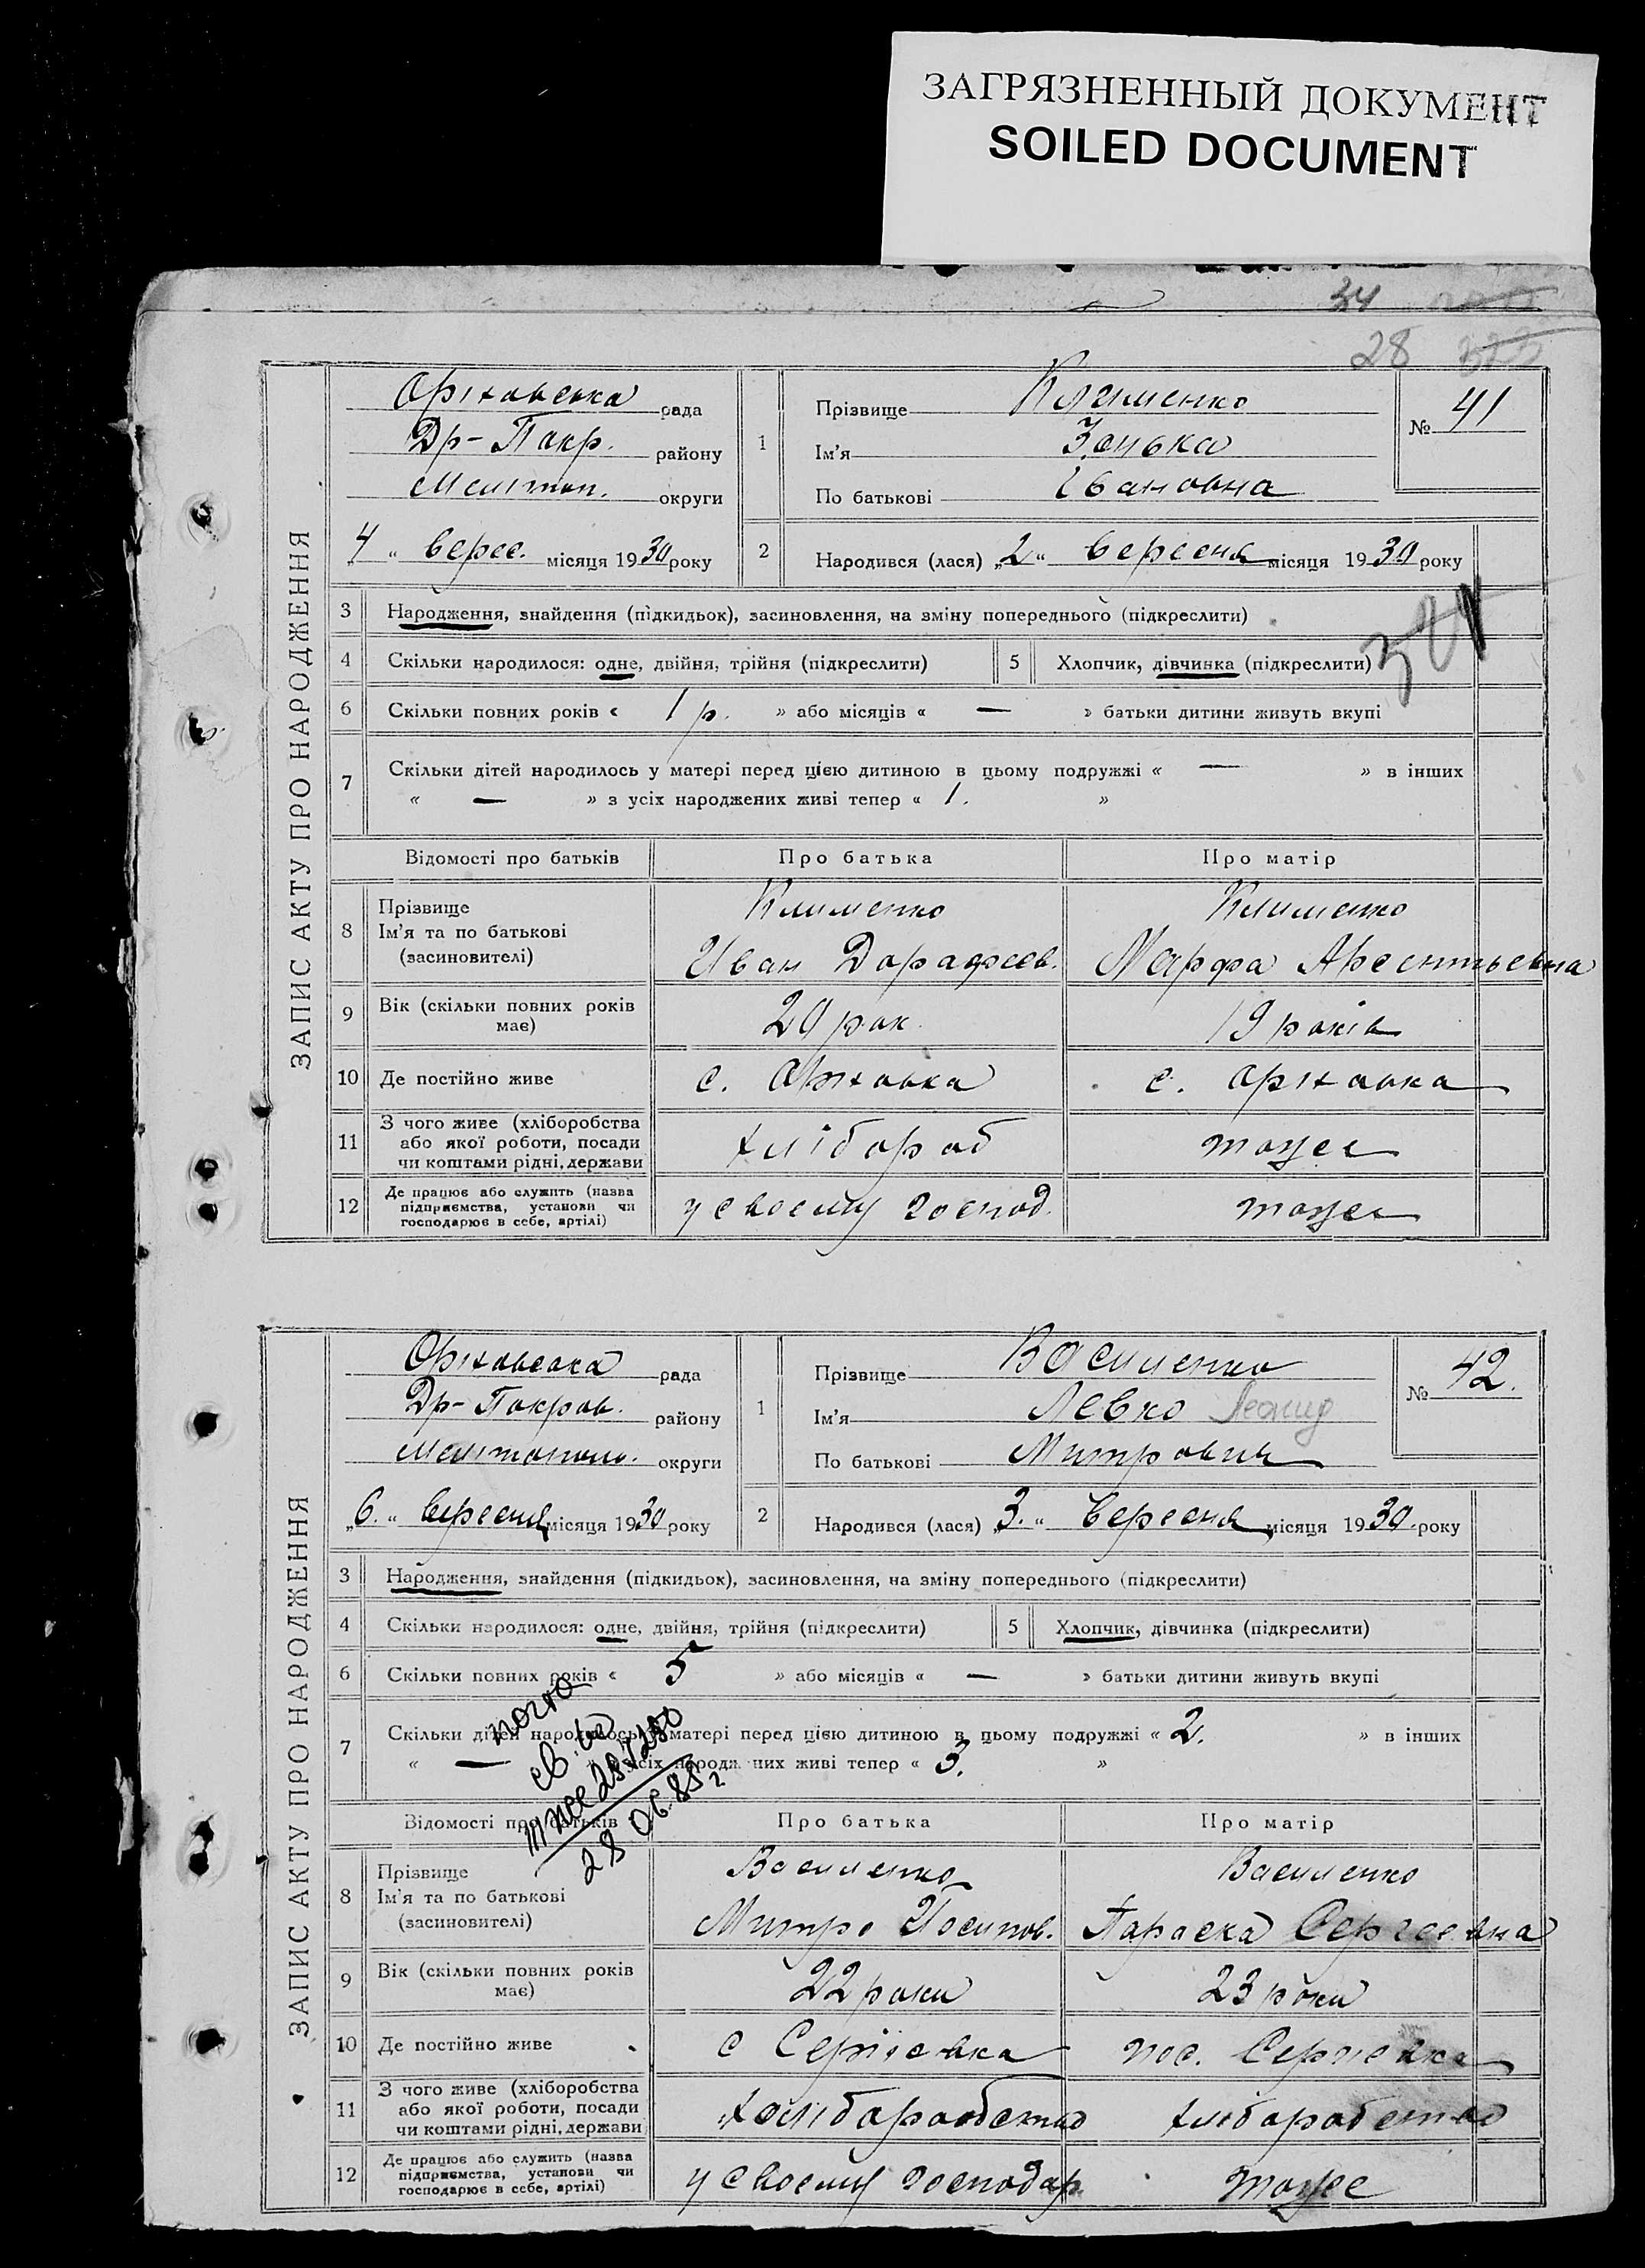 ЗАГРЯЗНЕННЫЙ ДОКУМЕНТ
SOILED DOCUMENT
34
28
ЗАПИС АКТУ ПРО НАРОДЖЕННЯ
Оріховська рада
Др-Покр. району
Мелітоп. округи
„4“ верес. місяця 1930 року
1 Прізвище Клименко
Ім'я Зонька
По батькові Івановна
№ 41
2 Народився (лася) „2“ вересня місяця 1930 року
3 Народження, знайдення (підкидьок), засиновлення, на зміну попереднього (підкреслити)
4 Скільки народилося: одне, двійня, трійня (підкреслити) 5 Хлопчик, дівчинка (підкреслити)
6 Скільки повних років « 1 р. » або місяців « — » батьки дитини живуть вкупі
7 Скільки дітей народилось у матері перед цією дитиною в цьому подружжі « — » в інших
« — » з усіх народжених живі тепер « 1. »
Відомості про батьків Про батька Про матір
8 Прізвище Клименко Клименко
Ім'я та по батькові
(засиновителі) Иван Дорафеев. Марфа
9 Вік (скільки повних років має) 20 рок. 19 років
10 Де постійно живе с. Оріховка с. Оріховка
11 З чого живе (хліборобства
або якої роботи, посади
чи коштами рідні, держави хлібороб тоже
12 Де працює або служить (назва
підприємства, установи чи
господарює в себе, артілі) у своєму господ. тоже
ЗАПИС АКТУ ПРО НАРОДЖЕННЯ
Оріховська рада
Др-Покров. району
Мелітополь. округи
„6.“ вересня місяця 1930 року
1 Прізвище Василенко
Ім'я Левко Леонид
По батькові Митрович
№ 42.
2 Народився (лася) „3.“ вересня місяця 1930 року
3 Народження, знайдення (підкидьок), засиновлення, на зміну попереднього (підкреслити)
4 Скільки народилося: одне, двійня, трійня (підкреслити) 5 Хлопчик, дівчинка (підкреслити)
6 Скільки повних років « 5 » або місяців « — » батьки дитини живуть вкупі
7 Скільки дітей народилось у матері перед цією дитиною в цьому подружжі « 2. » в інших
« — » з усіх народжених живі тепер « 3. »
28 06.85г
Відомості про батьків Про батька Про матір
8 Прізвище Василенко Василенко
Ім'я та по батькові
(засиновителі) Митро Иосипов. Параска Сергеевна
9 Вік (скільки повних років має) 22 роки 23 роки
10 Де постійно живе с Сергіевка пос. Сергіевка
11 З чого живе (хліборобства
або якої роботи, посади
чи коштами рідні, держави хліборобство хліборобство
12 Де працює або служить (назва
підприємства, установи чи
господарює в себе, артілі) у своєму господар. тоже